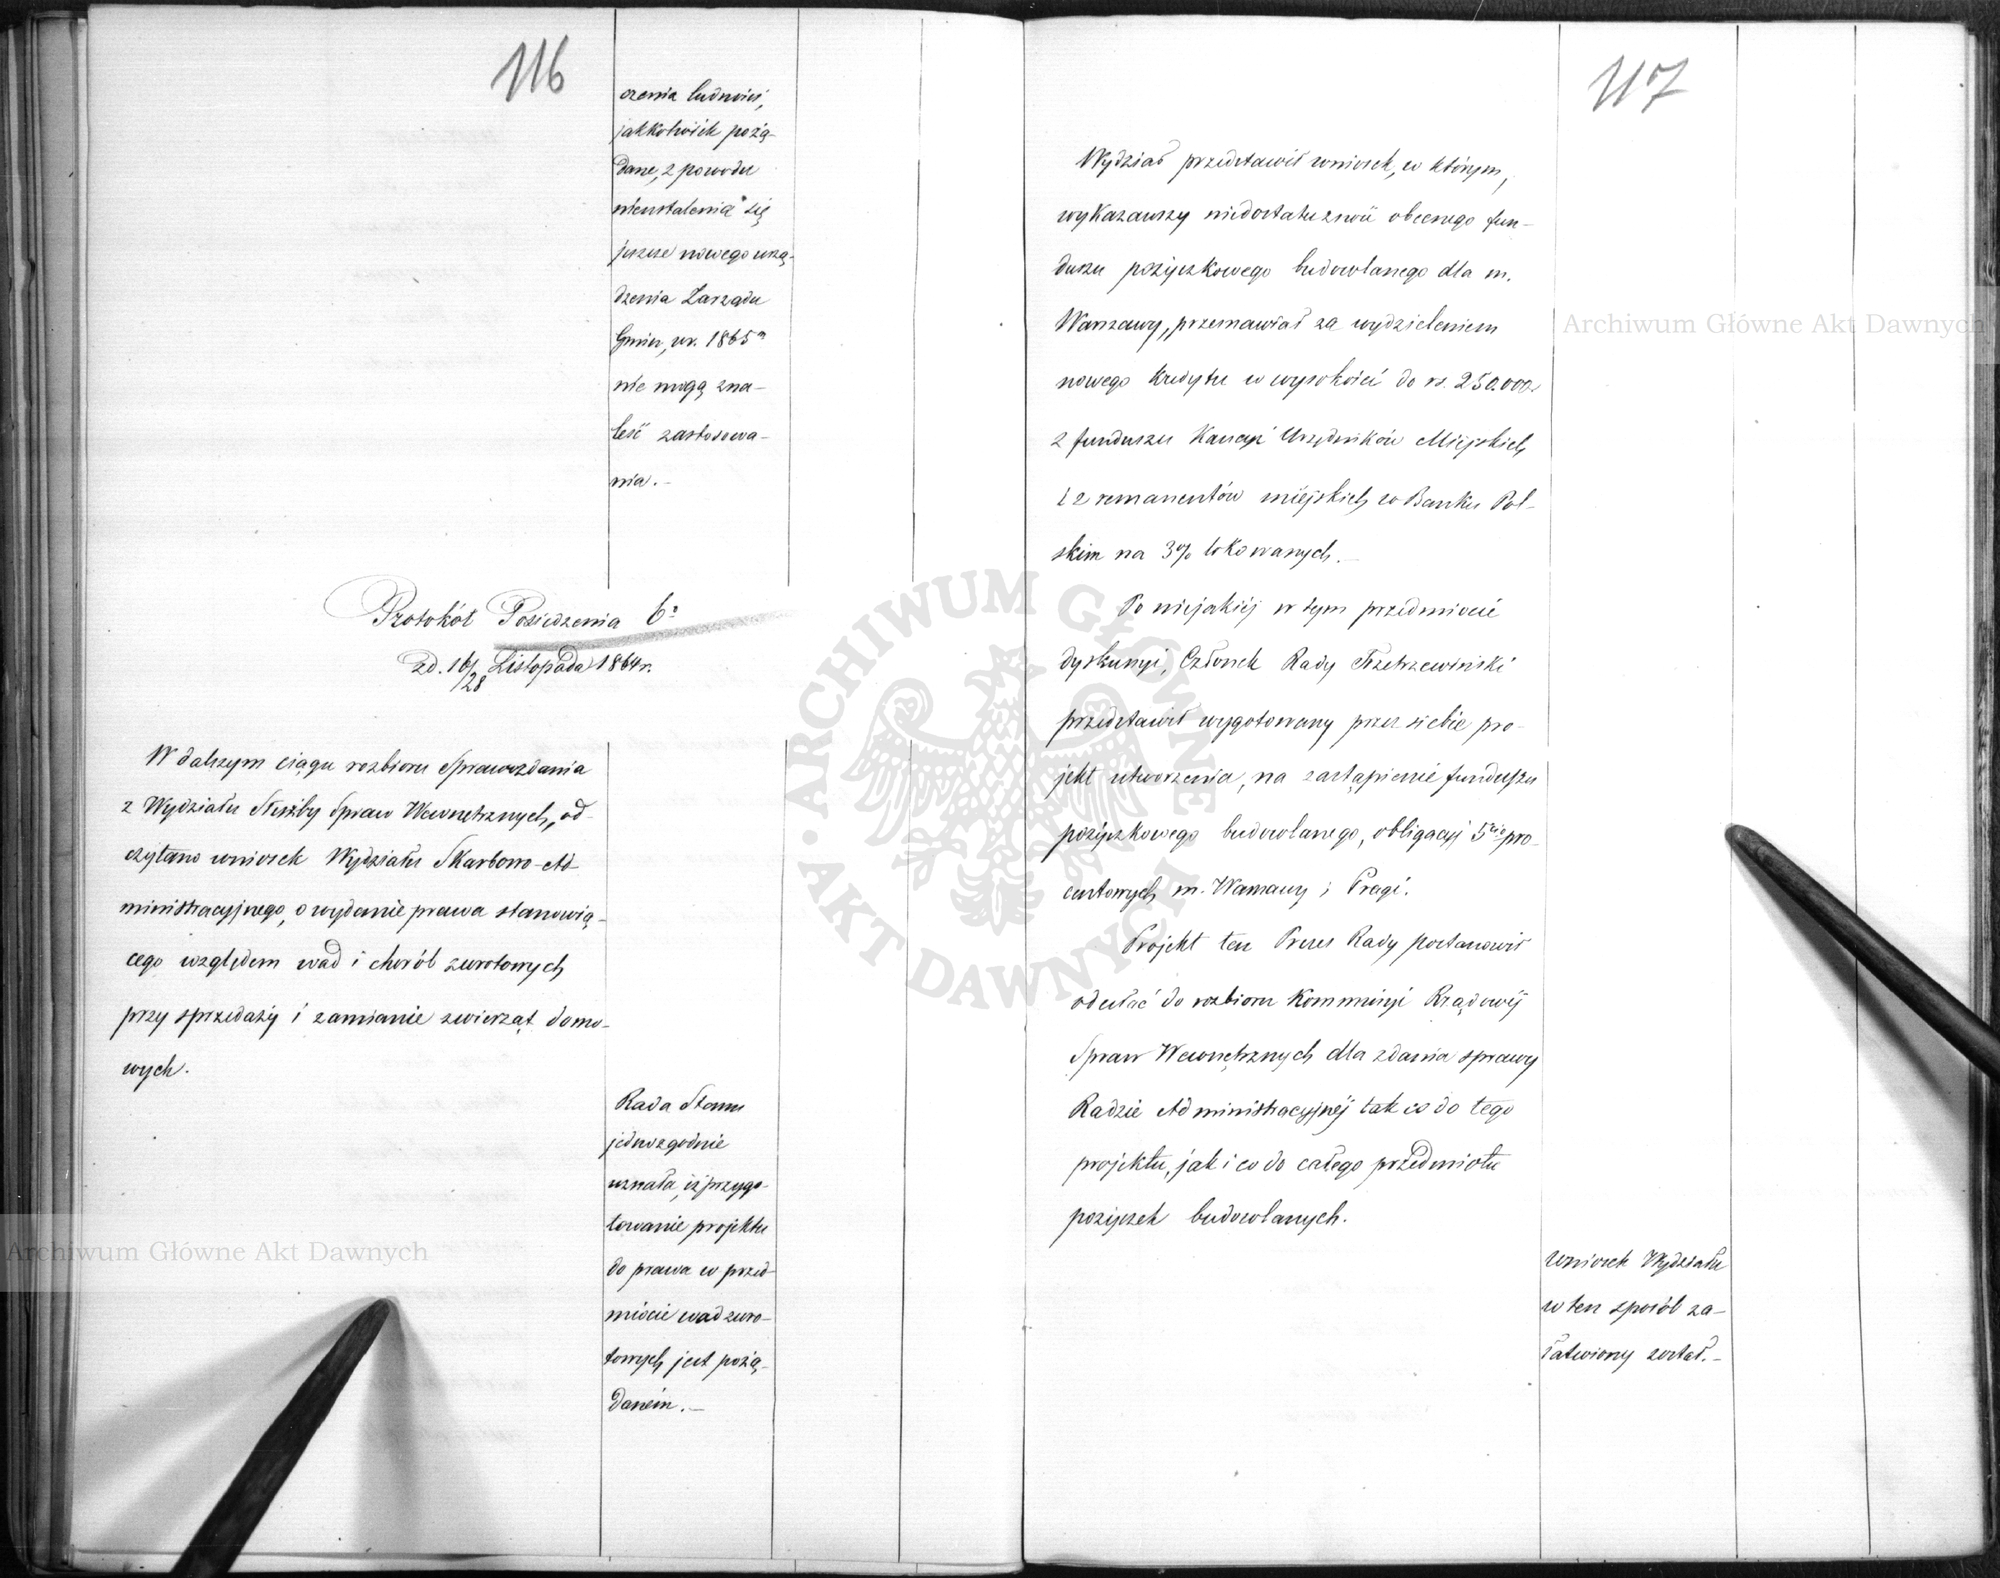 116
czenia ludności,
jakkolwiek pożą-
dane, z powodu
nieustalenia się
jeszcze nowego urzą-
dzenia Zarządu
Gmin, w r. 1865m
nie mogą zna-
leść zastosowa-
nia.-
Protokół Posiedzenia 6o
z d. 16/28 Listopada 1864 r.
W dalszym ciągu rozbioru Sprawozdania
z Wydziału Służby Spraw Wewnętrznych, od-
czytano wniosek Wydziału Skarbowo-Ad-
ministracyjnego, o wydanie prawa stanowią-
cego względem wad i chorób zwrotowych
przy sprzedaży i zamianie zwierząt domo-
wych.
Rada Stanu
jednozgodnie
uznała, iż przygo-
towanie projektu
do prawa w przed-
miocie wad zwro-
towych jest pożą-
daném.-
117
Wydział przedstawił wniosek, w którym,
wykazawszy niedostateczność obecnego fun-
duszu pożyczkowego budowlanego dla m.
Warszawy, przemawiał za wydzieleniem
nowego kredytu w wysokości do rs. 250.000
z funduszu Kaucji Urzędników Miejskich
i z remanentów miejskich w Banku Pol-
skim na 3% lokowanych.-
Po niejakiéj w tym przedmiocie
dyskusyi, Członek Rady Trzetrzewiński
przedstawił wygotowany przez siebie pro-
jekt utworzenia, na zastąpienie funduszu
pożyczkowego budowlanego, obligacyj 5cio pro-
centowych m. Warszawy i Pragi.
Projekt ten Prezes Rady postanowił
odesłać do rozbioru Kommissyi Rządowéj
Spraw Wewnętrznych dla zdania sprawy
Radzie Administracyjnéj tak co do tego
projektu, jak i co do całego przedmiotu
pożyczek budowlanych.
Wniosek Wydziału
w ten sposób za-
łatwiony został.-
Archiwum Główne Akt Dawnych
Archiwum Główne Akt Dawnych
ARCHIWUM GŁÓWNE AKT DAWNYCH